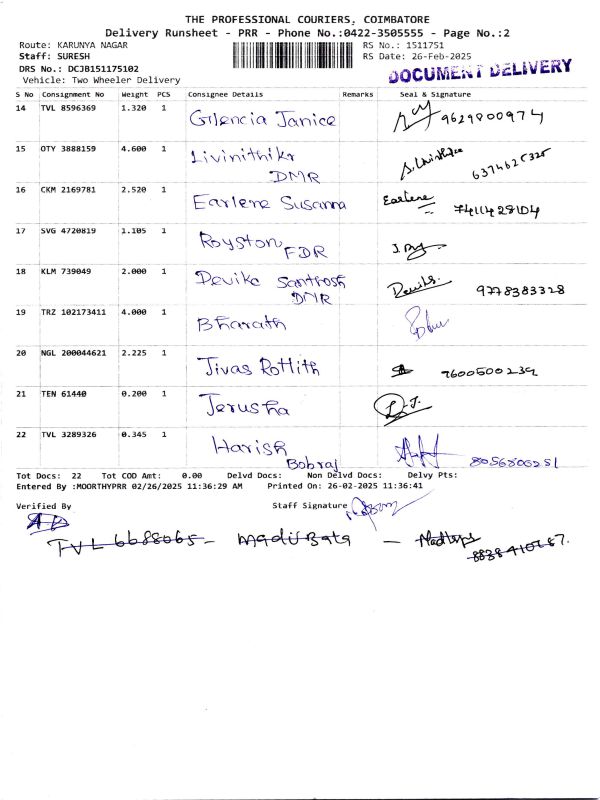 THE PROFESSIONAL COURIERS, COIMBATORE
Delivery Runsheet - PRR - Phone No.:0422-3505555 - Page No.:2
Route: KARUNYA NAGAR RS No.: 1511751
Staff: SURESH RS Date: 26-Feb-2025
DRS No.: DCJB151175102 DOCUMENT DELIVERY
Vehicle: Two Wheeler Delivery
S No Consignment No Weight PCS Consignee Details Remarks Seal & Signature
14 TVL 8596369 1.320 1 Gilencia Janice 9629800974
15 OTY 3888159 4.600 1 Livinithika
DMR
16 CKM 2169781 2.520 1 Earlene Susanna Earlene
17 SVG 4720819 1.105 1 Royston
FDR
18 KLM 739049 2.000 1 Devika Santhosh 9778383328
DMR
19 TRZ 102173411 4.000 1 Bharath
20 NGL 200044621 2.225 1 Jivas Rottith 7600500239
21 TEN 61440 0.200 1 Jerusha
22 TVL 3289326 0.345 1 Harish
Bobraj 8056800251
Tot Docs: 22 Tot COD Amt: 0.00 Delvd Docs: Non Delvd Docs: Delvy Pts:
Entered By :MOORTHYPRR 02/26/2025 11:36:29 AM Printed On: 26-02-2025 11:36:41
Verified By Staff Signature
TVL 6688065 -